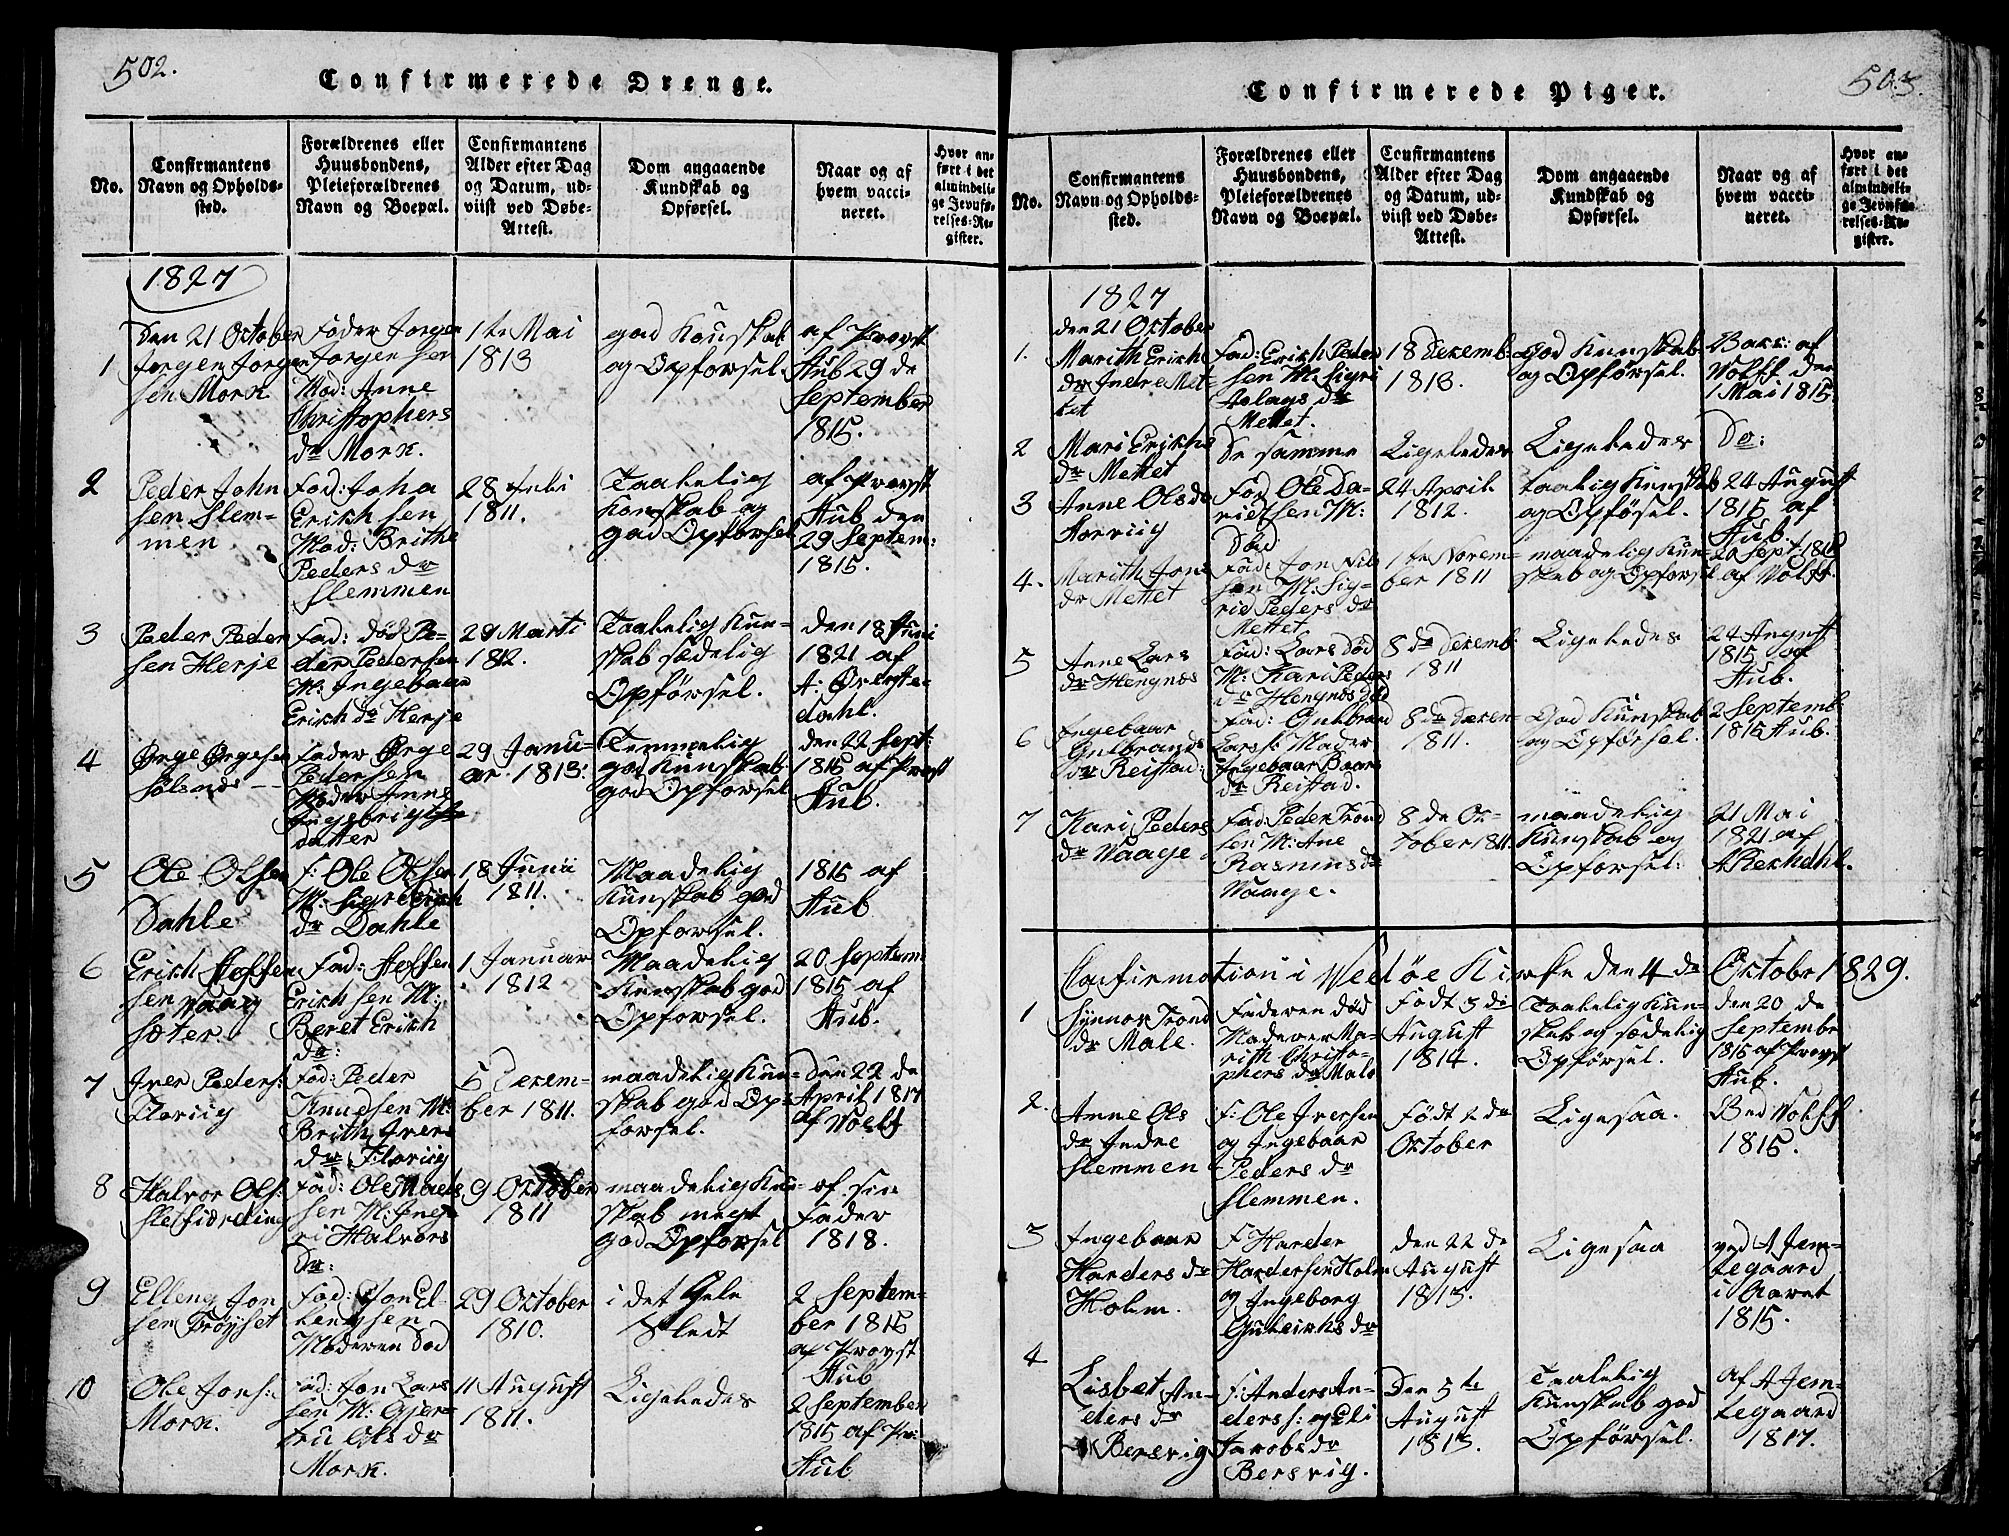 502.
Confirmerede Drenge.
No.
Confirmantens
Navn og Opholds-
sted.
Forældrenes eller
Huusbondens,
Pleieforældrenes
Navn og Boepæl.
Confirmantens
Alder efter Dag
og Datum, ud-
viist ved Døbe-
Attest.
Dom angaaende
Kundskab og
Opførsel.
Naar og af
hvem vacci-
neret.
Hvor an-
ført i det
almindeli-
ge Jevnfø-
relses-Re-
gister.
1827
Den 21 October
1
Jørgen Jørgen
sen Mork
Fader Jørgen
Jørgensen
Mod: Anne
Christophers
dr Mork.
1te Mai
1813
god Kunskab
og Opforsel.
af Provst
Stub 29 de
September
1815.
2
Peder John
sen Slem-
men
Fad: John
Erichsen
Mod: Brithe
Peders dr
Slemmen
28 Febr
1811.
Taalelig
Konskab og
god Opforsel
af Provst
Stub den
29 Septem:
1815.
3
Peder Peder
sen Herje
Fad: død Pe-
der Pedersen
M: Ingebaar
Erich dr Herje
29 Marti
1812.
Taalelig Kun-
skab sædelig
Opførsel.
Den 18 Juni
1821 af
A: Øverste-
dahl.
4
Ørge Ørgesen
Solsnes
Fader Ørge
Pedersen
Moder Anne
Ingebrigts
datter
29 Janu-
ar. 1813.
Temmelig
god Kunskab
god Opforsel
den 22 Sept:
1815 af Provst
Stub.
5
Ole Olsen
Dahle
F: Ole Olsen
M: Sigri Erich
dr Dahle
18 Junii
1811.
Maadelig
Kunskab god
Opforsel.
1815 af
Stub
6
Erich Steffen
sen Vaag
sæter.
Fad: Steffen
Erichsen M:
Beret Erich
dr:
1 Januar
1812
Maadelig
Kunskab god
Opforsel.
20 Septem
1815 af
Stub.
7
Iver Peders:
Florvig
Fad: Peder
Knudsen M:
Brith Ivers
dr Florvig
5 Decem-
ber 1811.
maadelig Kun-
skab god Op-
forsel.
Den 22 de
April 1817
af Wolff
8
Halvor Ols:
Sletfiørding
Fad: Ole Mads
sen M: Ing
ri Halvors
Dr:
9 October
1811
maadelig Kun-
skab meget
god Opforsel
af sin
Fader
1818.
9
Elleng Jon
sen Frøyset
Fad: Jon El-
lengsen
Moderen død
29 October
1810.
i det Hele
Slet
2 Septem-
ber 1815
af Provst
Stub
10
Ole Jons:
Mork.
Fad: Jon Lars
sen M: Gjer-
tru Ols dr
Mork.
11 August
1811.
Ligeledes
2 September
1815 af Pr:
Stub
503.
Confirmerede Piger.
No.
Confirmantens
Navn og Opholds-
sted.
Forældrenes eller
Huusbondens,
Pleieforældrenes
Navn og Boepæl.
Confirmantens
Alder efter Dag
og Datum, ud-
viist ved Døbe-
Attest.
Dom angaaende
Kundskab og
Opførsel.
Naar og af
hvem vacci-
neret.
Hvor an-
ført i det
almindeli-
ge Jevnfø-
relses-Re-
gister.
1827
den 21 October
1.
Marith Erich
dr Indre Met-
tet
Fad: Erich Peder
sen M. Sigri
Aslags dr
Mettet.
18 Decemb:
1813.
God Kunskab
og Opførsel.
Bars: af
Wolff den
1 Mai 1815
2
Mari Erichs
dr Mettet
De samme
Ligeledes
Ligeledes
Do:
3
Anne Olsdr
Horvig
Fad Ole Da-
vidsen M:
Død
24 April
1812.
taalig Kunskab
og Opføsel.
24 August
1815 af
Stub.
4.
Marith Jons
dr Mettet
Fad: Jon Nils
sen M: Sig-
rid Peders dr
Mettet
1te Novem-
ber 1811
maadelig Kun-
skab og Opforsel
20 Sept: 1815
af Wolff.
5
Anne Lars
dr Hengnæs
Fad: Lars død
M: Kari Peders
dr Hengnæs død
8 de Decemb
1811
Ligeledes
24 August
1815 af
Stub.
6
Ingebaar
Gulbrands
dr Reistad:
Fad: Gulbrand
Lars s: Moder
Ingebaar Baars
dr Reistad.
8 de Decem-
1811.
God Kunskab
og Opførsel.
2 Septemb
1815 Stub.
7
Kari Peders
dr Vaage
Fad: Peder Trond
sen M: Ane
Rasmus dr
Vaage.
8 de Oc-
tober 1811
maadelig
Kunskab og
Opforsel:
21 Mai
1821 af
A Rekdahl.
Confirmation i Vedøe Kirke den 4 de October 1829.
1
Synnov Trond
dr Male.
Faderen død
Moderen Ma-
rith Christo-
phers dr Male
Født 3 de
August
1814.
Taalelig Kun-
skab og sædelig
Opførsel.
den 20 de
Septembr
1815 af Provst
Stub.
2.
Anne Ols
dr Indre
Slemmen
F: Ole Iversen
og Ingebaar
Peders dr
Slemmen.
Født 2 de
October
Ligesaa.
Ved Wolff
1815.
3
Ingebaar
Harders dr
Holm.
F Harder
Hardersen Holm
og Ingeborg
Guleichs dr
Den 22 de
August
1813.
Ligesaa
ved A Jem-
tegaard
i Aaret
1815.
4
Lisbet An-
ders dr
Bersvig
F: Anders An-
derss: og Eli
Jacobs dr
Bersvig.
Den 5te
August
1813.
Taalelig
Kunskab god
Opførsel.
af A Jem-
tegaard
1817.